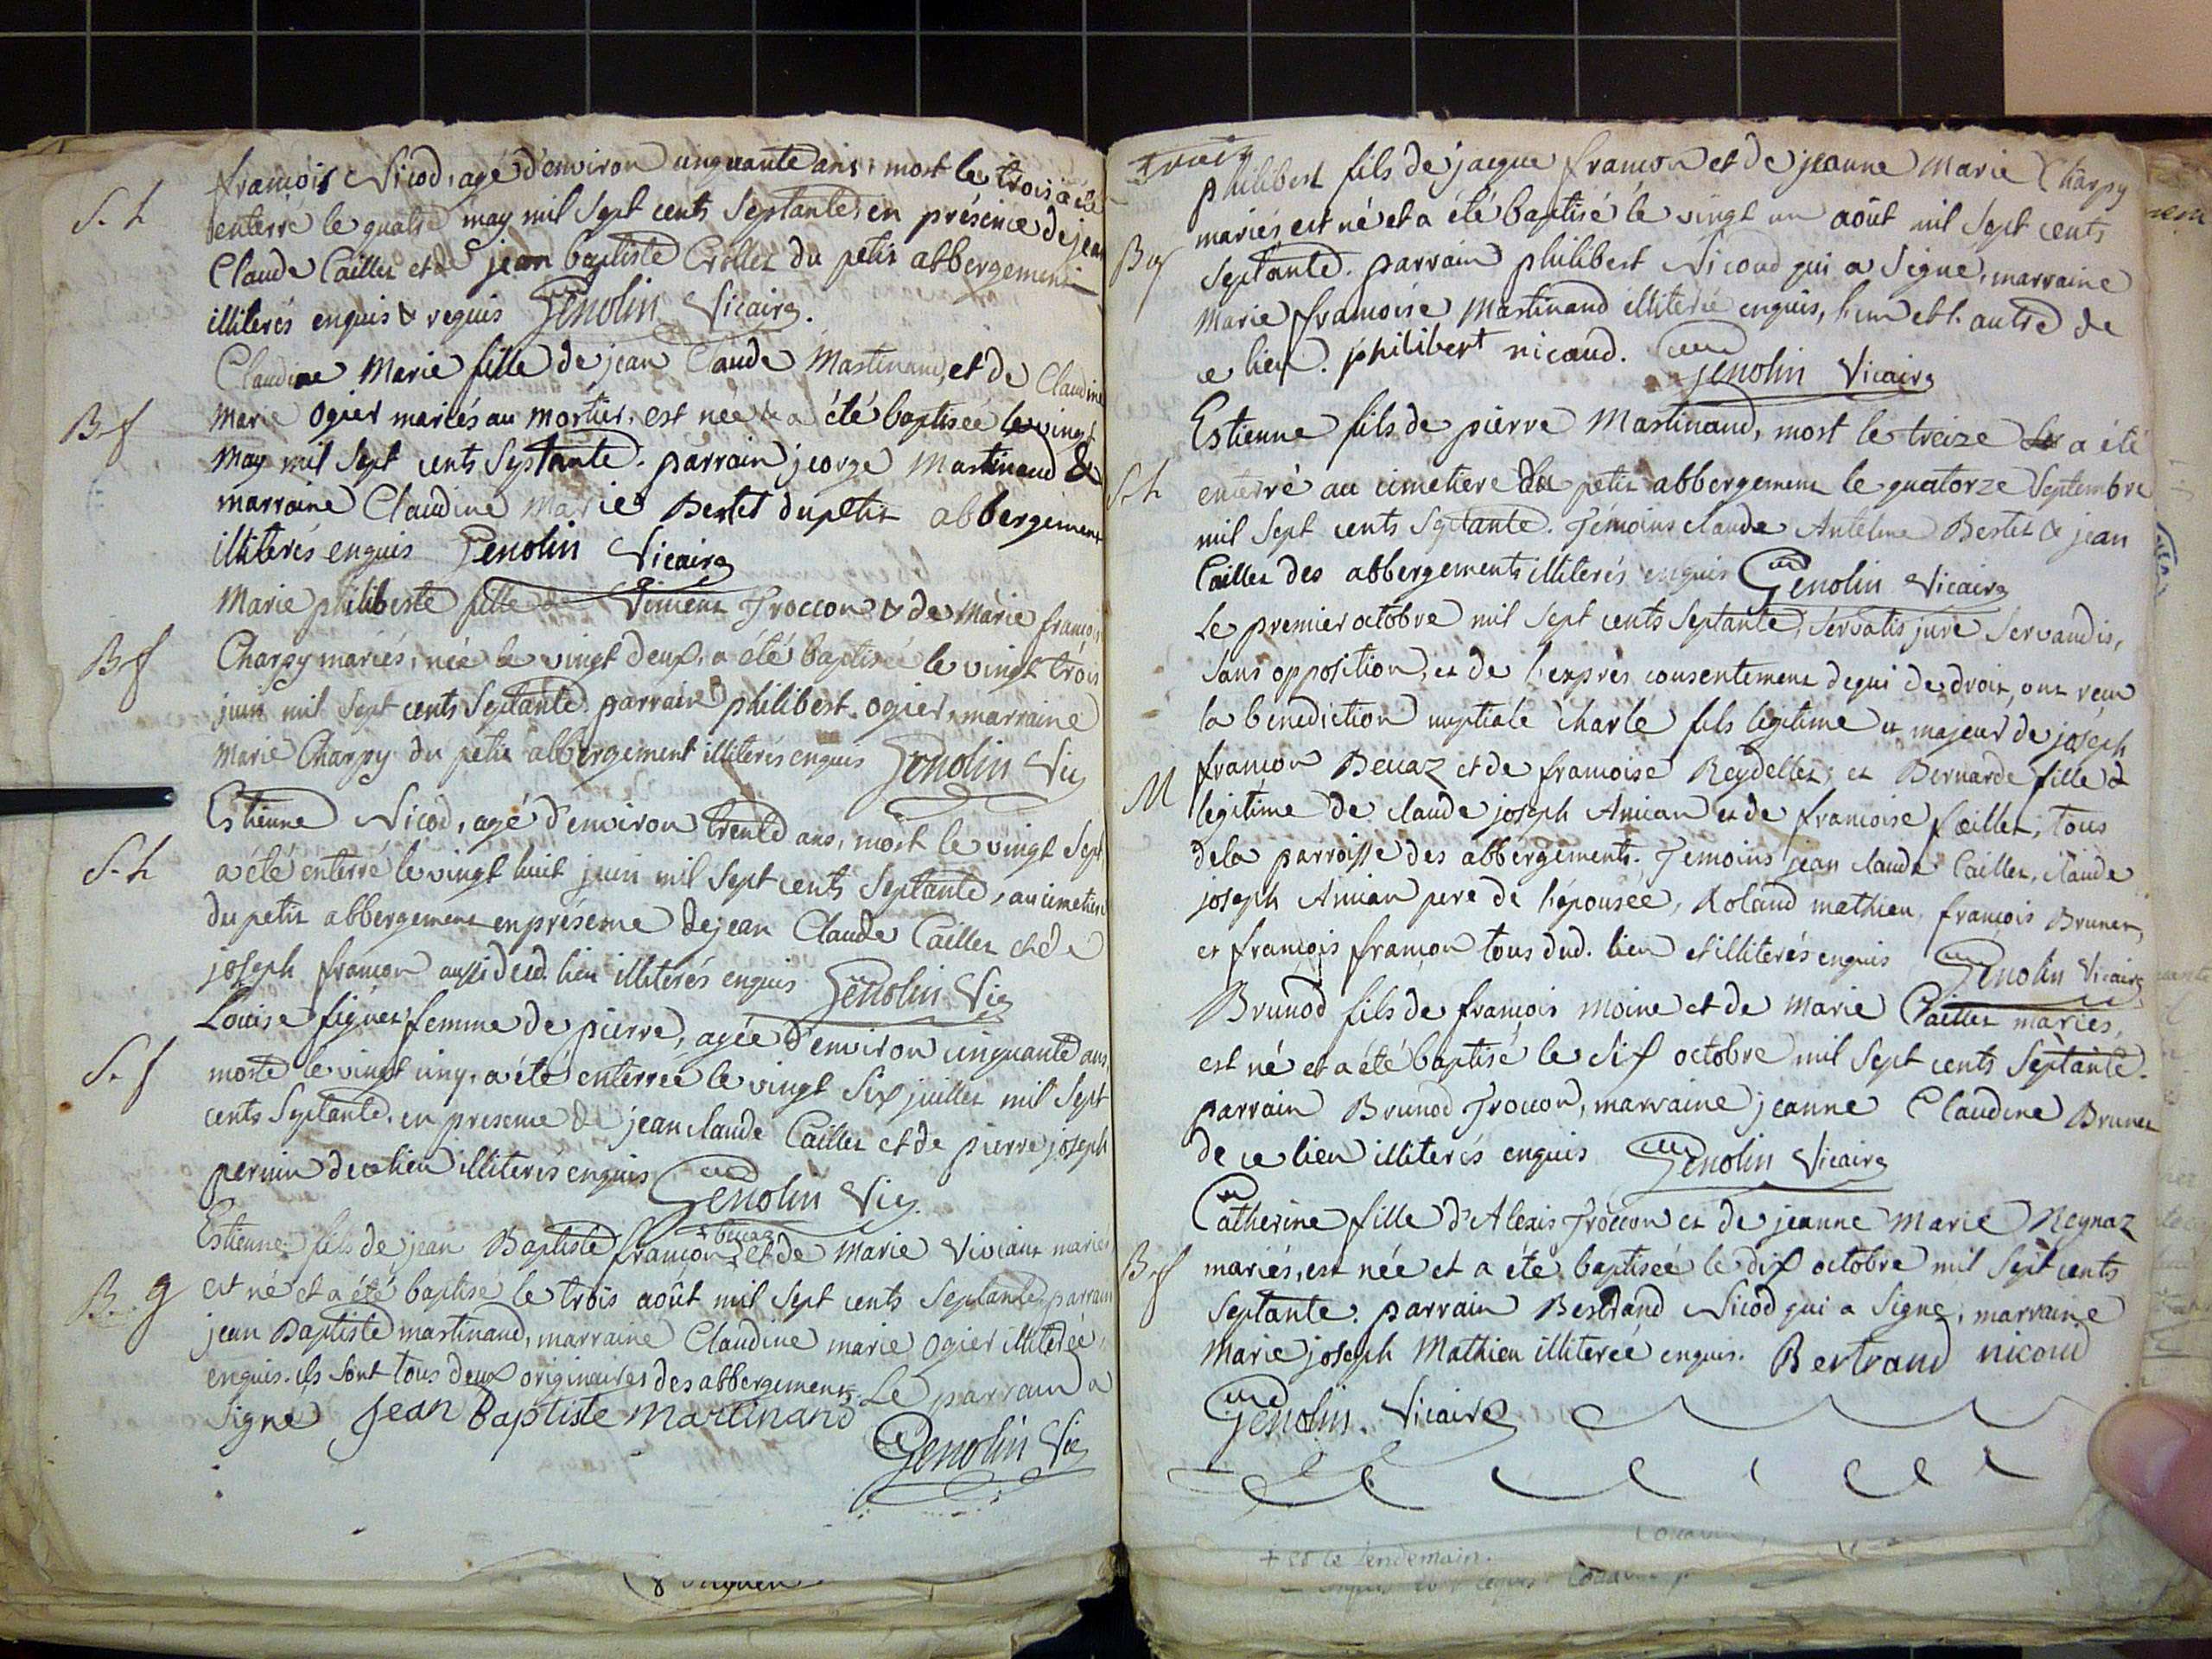 françois Nicod, agé d'environ cinquante ans, mort le trois, a été
S. h
enterré le quatre may mil Sept cents Septante, en présence de jean
Claude Caillet et de jean baptiste Crollet du petit abbergement
illiterés enquis & requis Genolin Vicaire.
Claudine Marie fille de jean Claude Martinand, et de Claudine
B. f
Marie Ogier mariés au mortier, est née & a été baptisée le vingt
May mil Sept cents Septante. parrain george Martinand &
marraine Claudine Marie Bertet du petit abbergement
illiterés enquis Genolin Vicaire
Marie philiberte fille de Vincent Troccon & de Marie françoise
B. f
Charpy mariés, née le vingt deux, a été baptisée le vingt trois
juin mil Sept cents Septante. parrain philibert Ogier, marraine
Marie Charpy du petit abbergement illiterés enquis Genolin Vic
Estienne Nicod, agé d'environ trente ans, mort le vingt Sept
S. h
a été enterré le vingt huit juin mil Sept cents Septante, au cimetiere
du petit abbergement en présence de jean Claude Caillet et de
joseph françon aussi dud. lieu illiterés enquis Genolin Vic
Louise figuet femme de pierre, agée d'environ cinquante ans,
S. f
morte le vingt cinq, a été enterrée le vingt Six juillet mil Sept
cents Septante, en presence de jean claude Caillet et de pierre joseph
perrin de ce lieu illiterés enquis Genolin Vic.
+ beccaz
Estienne fils de jean Baptiste françon + et de Marie Viviant mariés
B. g
est né et a été baptisé le trois août mil Sept cents Septante, parrain
jean Baptiste martinand, marraine Claudine marie Ogier illiterée
enquis. ils sont tous deux originaires des abbergements. Le parrain a
Signé Jean Baptiste Martinand
Genolin Vic
philibert fils de jacque françon et de jeanne Marie Charpy
mariés est né et a été baptisé le vingt un août mil Sept cents
B g
Septante. parrain philibert Nicoud qui a Signé, marraine
Marie françoise Martinand illiterée enquis, l'un et l'autre de
ce lieu. philibert nicoud.
Genolin Vicaire
Estienne fils de pierre Martinand, mort le treize a été
S. h
enterré au cimetiere du petit abbergement le quatorze Septembre
mil Sept cents Septante. Témoins claude Antelme Bertet & jean
Caillet des abbergements illiterés enquis Genolin Vicaire
Le premier octobre mil Sept cents Septante, Servatis jure Servandis,
Sans opposition, et de l'exprès consentement de qui de droit, ont reçu
la benediction nuptiale Charle fils légitime et majeur de joseph
françon Beccaz et de françoise Reydellet, et Bernarde fille
M
légitime de claude joseph Ancian et de françoise foeillet, tous
de la parroisse des abbergements. Temoins jean claude Caillet, claude
joseph Ancian pere de l'épousée, Roland mathieu, françois Brunet,
et françois françon tous dud. lieu et illiterés enquis Genolin Vicaire
Brunod fils de françois Moine et de Marie Caillet mariés,
est né et a été baptisé le Six octobre mil Sept cents Septante.
parrain Brunod Troccon, marraine jeanne Claudine Brunet
de ce lieu illiterés enquis Genolin Vicaire
Catherine fille d'Alexis Troccon et de jeanne Marie Reynaz
B. f
mariés, est née et a été baptisée le dix octobre mil Sept cents
Septante. parrain Bertrand Nicod qui a Signé, marraine
Marie joseph Mathieu illiterée enquis. Bertrand nicoud
Genolin. Vicaire
+ et le lendemain.